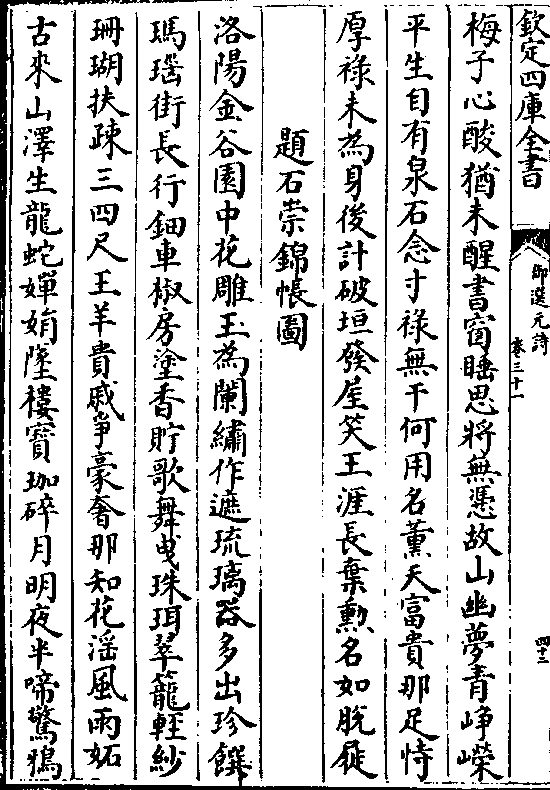 欽定四庫全書
御選元詩
卷三十一
四十三
梅子心酸猶未醒書窗睡思將無憑故山幽夢青崢嶸
平生自有泉石念寸祿無干何用名薰天富貴那足恃
厚祿未為身後計破垣發屋笑王涯長棄勲名如脫屣
題石崇錦帳圖
洛陽金谷園中花雕玉為闌繡作遮琉璃器多出珍饌
瑪瑙街長行鈿車椒房塗香貯歌舞曵珠珥翠籠輕紗
珊瑚扶疎三四尺王羊貴戚爭豪奢那知花滛風雨妬
古來山澤生龍蛇嬋娟墜樓寳珈碎月明夜半啼驚鴉